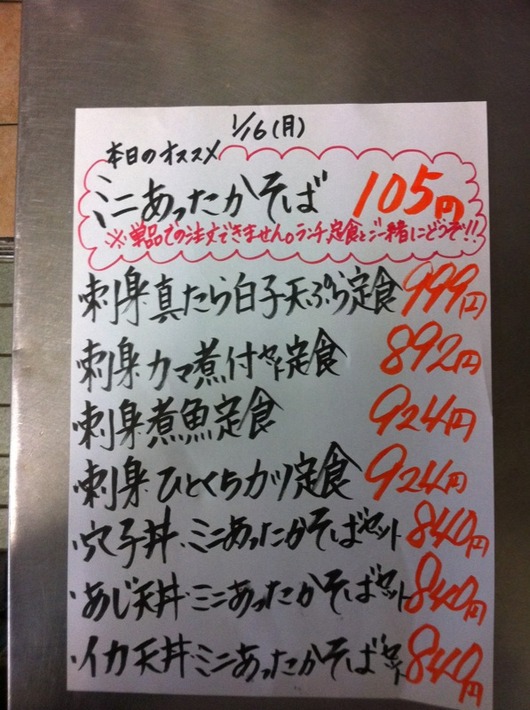 1/16(月)
本日のオススメ
ミニあったかそば 105円
※単品での注文できません。ランチ定食とご一緒にどうぞ!!
刺身真たら白子天ぷら定食 999円
刺身カマ煮付け定食 892円
刺身煮魚定食 924円
刺身ひとくちカツ定食 924円
・穴子丼・ミニあったかそばセット 840円
・あじ天丼・ミニあったかそばセット 840円
・イカ天丼・ミニあったかそばセット 840円